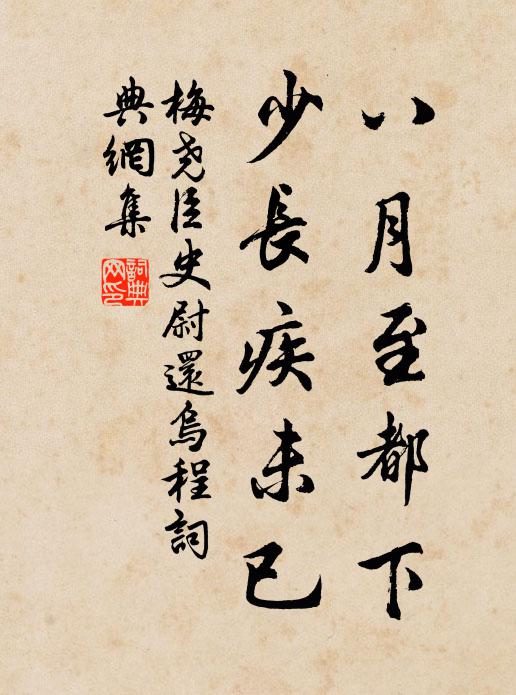 八月至都下
少長疾未已
梅尧臣史尉還烏程詞
典網集
詞典
网印